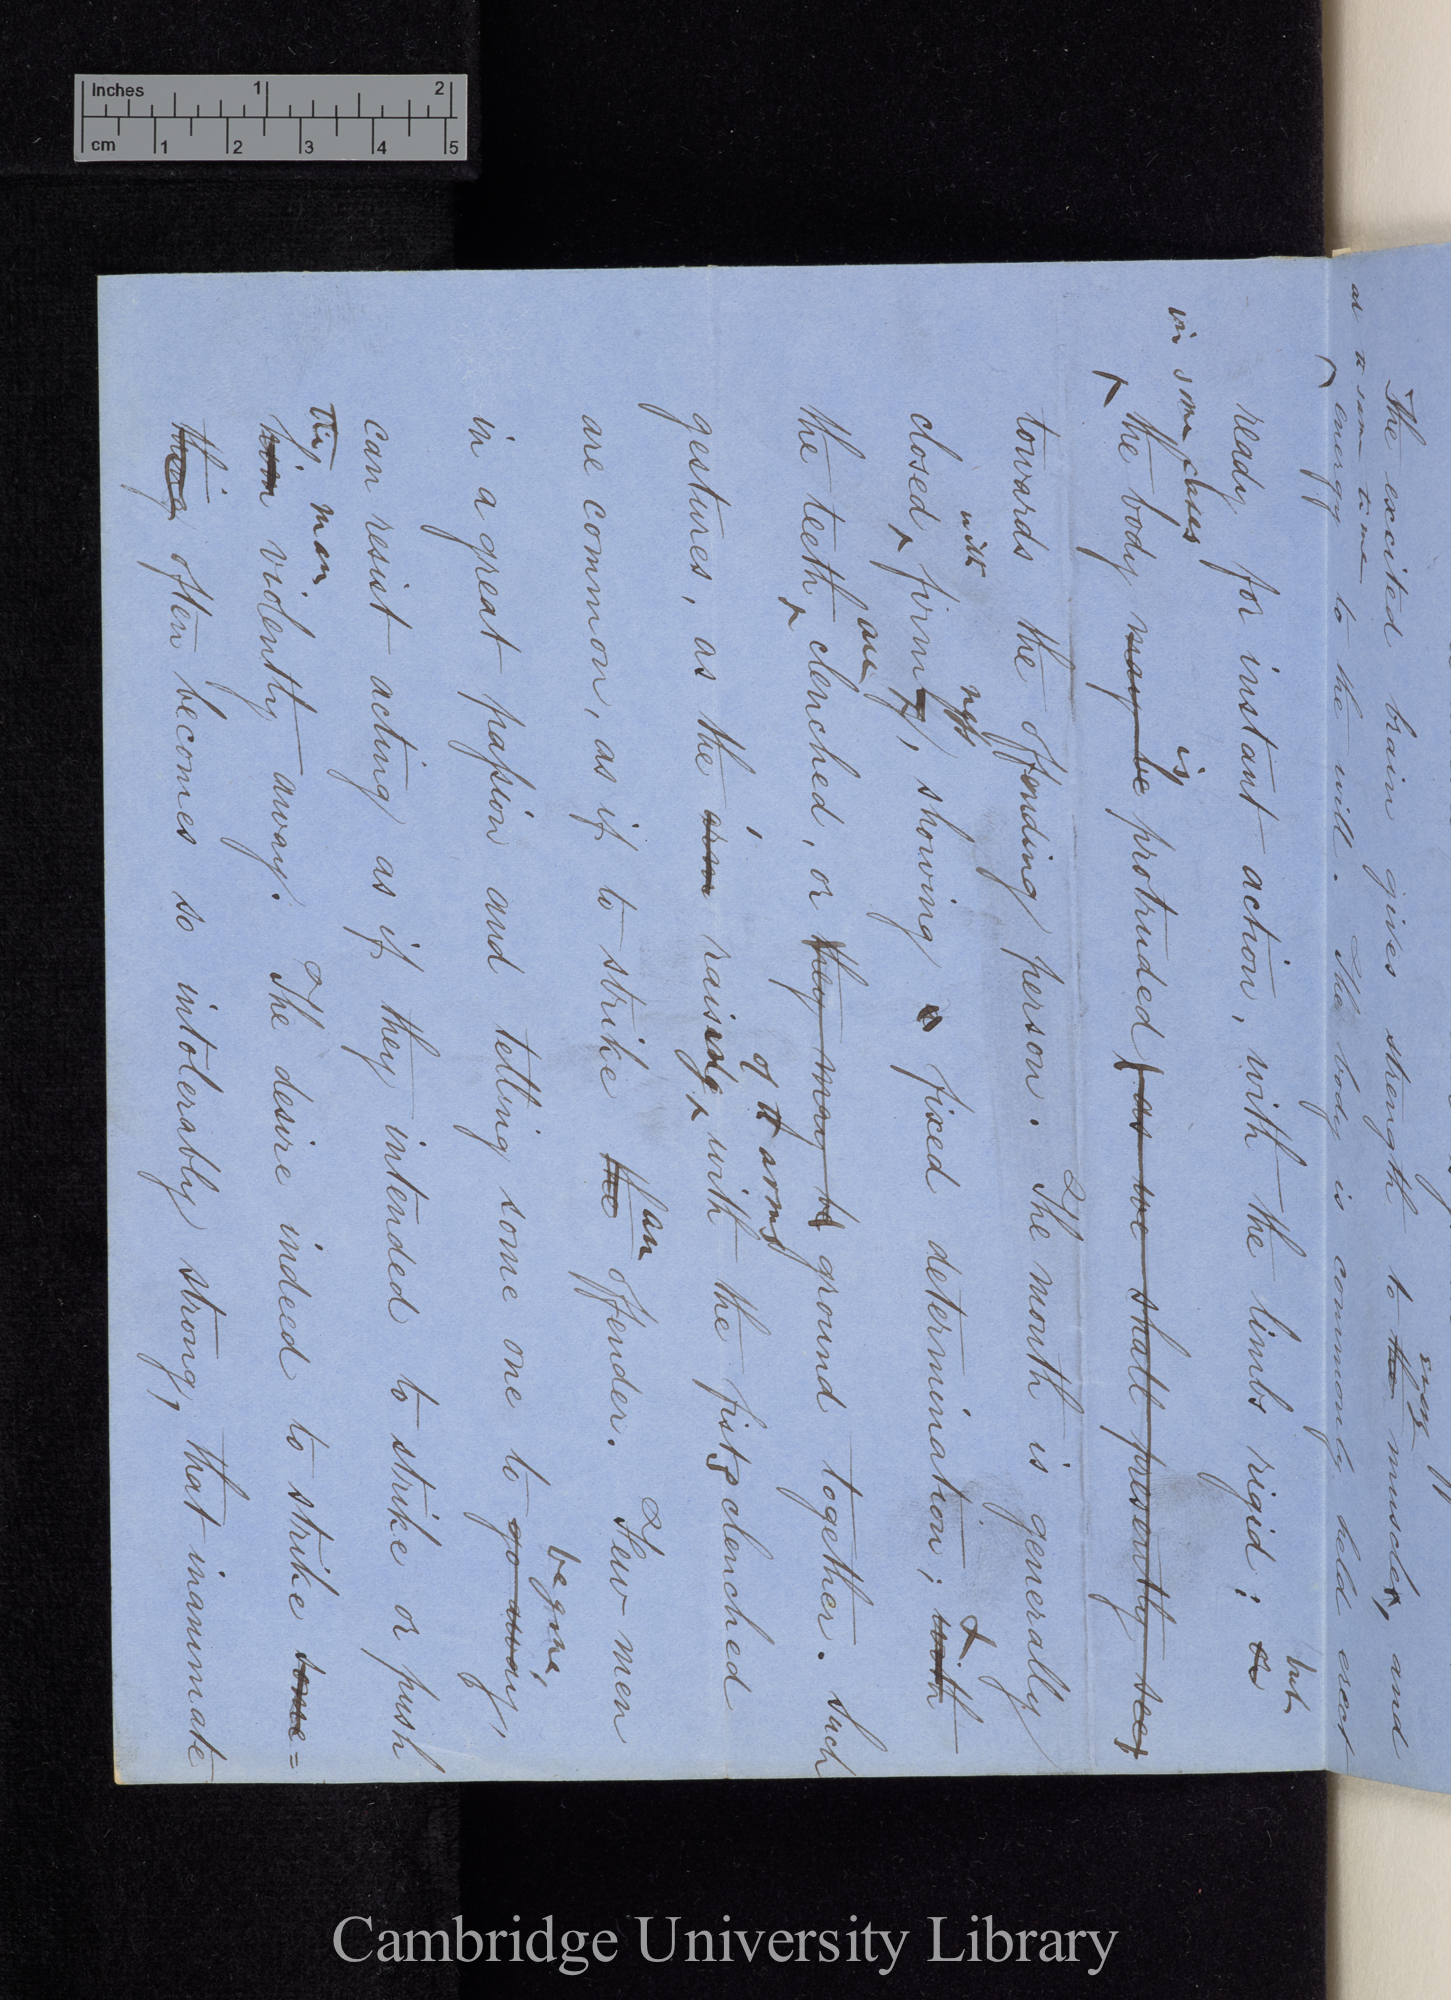 Inches 1 2
cm 1 2 3 4 5
The excited brain gives strength to the muscles, and
at the same time
energy to the will. The body is commonly held erect
but
ready for instant action, with the limbs rigid; or
in some cases is
the body may be protruded (as we shall presently see)
towards the offending person. The mouth is generally
with ness &
closed, firmly, showing a fixed determination; with
are
the teeth clenched, or they may be ground together. Such
of the arms
gestures, as the arm raising with the fists clenched
an
are common, as if to strike the offender. Few men
begone,
in a great passion and telling some one to go away,
can resist acting as if they intended to strike or push
this man
him violently away. The desire indeed to strike some=
thing often becomes so intolerably strong, that inanimate
Cambridge University Library